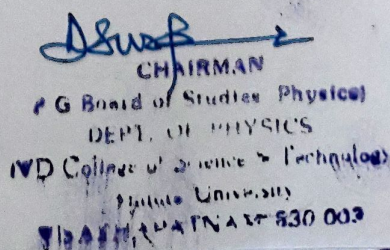 CHAIRMAN
P G Board of Studies Physics)
DEPT. OF PHYSICS
College of Science & Technology
University
530 003